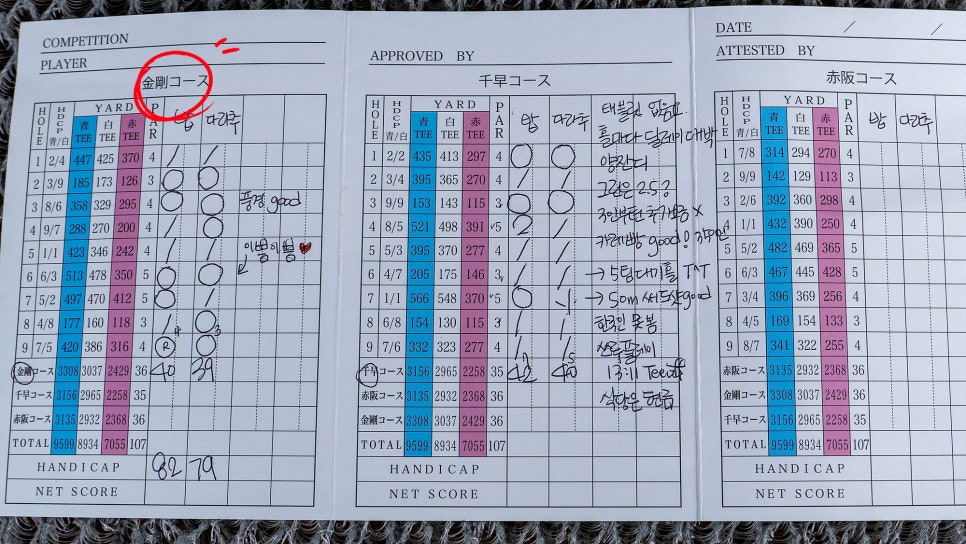 COMPETITION
PLAYER
金剛コース
HOLE HDCP 青/白 YARD 青TEE 白TEE 赤TEE PAR 밤 다라추
1 2/4 447 425 370 4 / /
2 3/9 185 173 126 3 ○ ○
3 8/6 358 329 295 4 ○ ○ 풍경 good
4 9/7 288 270 200 4 / ○
5 1/1 423 346 242 4 / / 이쁨이쁨 ♥
6 6/3 513 478 350 5 ○ ○
7 5/2 497 470 412 5 ○ /
8 4/8 177 160 118 3 / ○
9 7/5 420 386 316 4 Ⓡ ○
金剛コース 3308 3037 2429 36 40 39
千早コース 3156 2965 2258 35
赤阪コース 3135 2932 2368 36
TOTAL 9599 8934 7055 107
HANDICAP 82 79
NET SCORE
APPROVED BY
千早コース
HOLE HDCP 青/白 YARD 青TEE 白TEE 赤TEE PAR 밤 다라추
1 2/2 435 413 297 4 ○ ○
2 3/4 395 365 270 4 / /
3 9/9 153 143 115 3 ○ ○
4 8/5 521 498 391 5 2 /
5 5/3 395 370 277 4 / /
6 4/7 205 175 146 3 / /
7 1/1 566 548 370 5 ○ -1
8 6/8 154 130 115 3 / /
9 7/6 332 323 277 4 / /
千早コース 3156 2965 2258 35 42 40
赤阪コース 3135 2932 2368 36
金剛コース 3308 3037 2429 36
TOTAL 9599 8934 7055 107
HANDICAP
NET SCORE
태블릿 없음요
홀마다 딜레이 대박
양잔디
그린은 2.5?
3인부턴 추가요금 X
카레빵 good!
→ 5팀대기홀 T^T
→ 50m 써드샷 good
한국인 못봄
쓰루플레이
13:11 Tee off
식당은 현금
DATE / /
ATTESTED BY
赤阪コース
HOLE HDCP 青/白 YARD 青TEE 白TEE 赤TEE PAR 밤 다라추
1 7/8 314 294 270 4
2 9/9 142 129 113 3
3 2/6 392 360 298 4
4 1/1 432 390 250 4
5 5/2 482 469 365 5
6 6/3 467 445 428 5
7 3/4 396 369 256 4
8 4/5 169 154 133 3
9 8/7 341 322 255 4
赤阪コース 3135 2932 2368 36
金剛コース 3308 3037 2429 36
千早コース 3156 2965 2258 35
TOTAL 9599 8934 7055 107
HANDICAP
NET SCORE